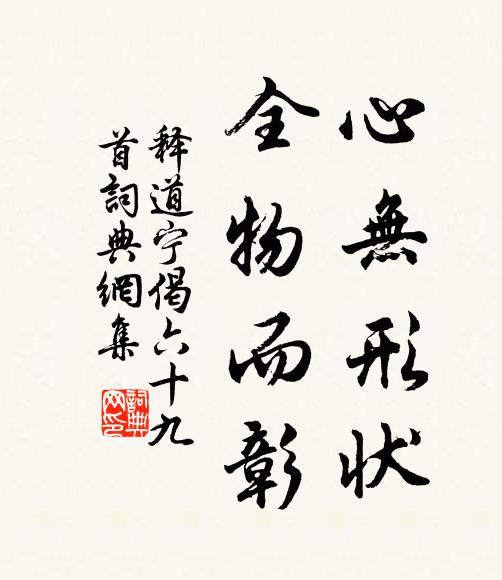 心無形状
全物而彰
释道宁偈六十九
首詞典網集
詞典
网印